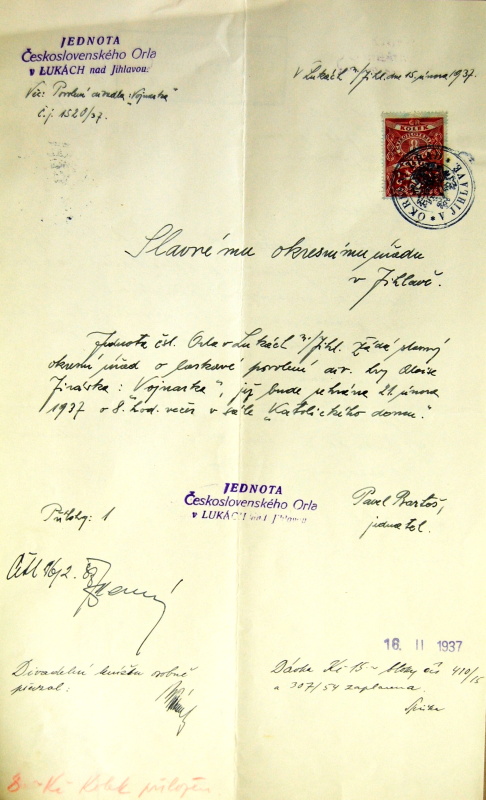 JEDNOTA
Československého Orla
v LUKÁCH nad Jihlavou
Věc: Povolení divadla „Vojnarka“
č.j. 1520/37.
V Lukách n/Jihl. dne 15. února 1937.
KOLEK
8
OKR
V JIHLAVĚ
Slavnému okresnímu úřadu
v Jihlavě.
Jednota čsl. Orla v Lukách n/Jihl. žádá slavný
okresní úřad o laskavé povolení div. hry Aloise
Jiráska: „Vojnarka“, jež bude sehrána 21. února
1937 o 8. hod. večer v sále „Katolického domu“.
JEDNOTA
Československého Orla
v LUKÁCH nad Jihlavou
Přílohy: 1
Pavel Bartoš,
jednatel.
16. II 1937
Divadelní knížku
převzal:
Dávka Kč 15 - 410/15
a 307/54 zaplacena.
8 - Kč Kolek přiložen